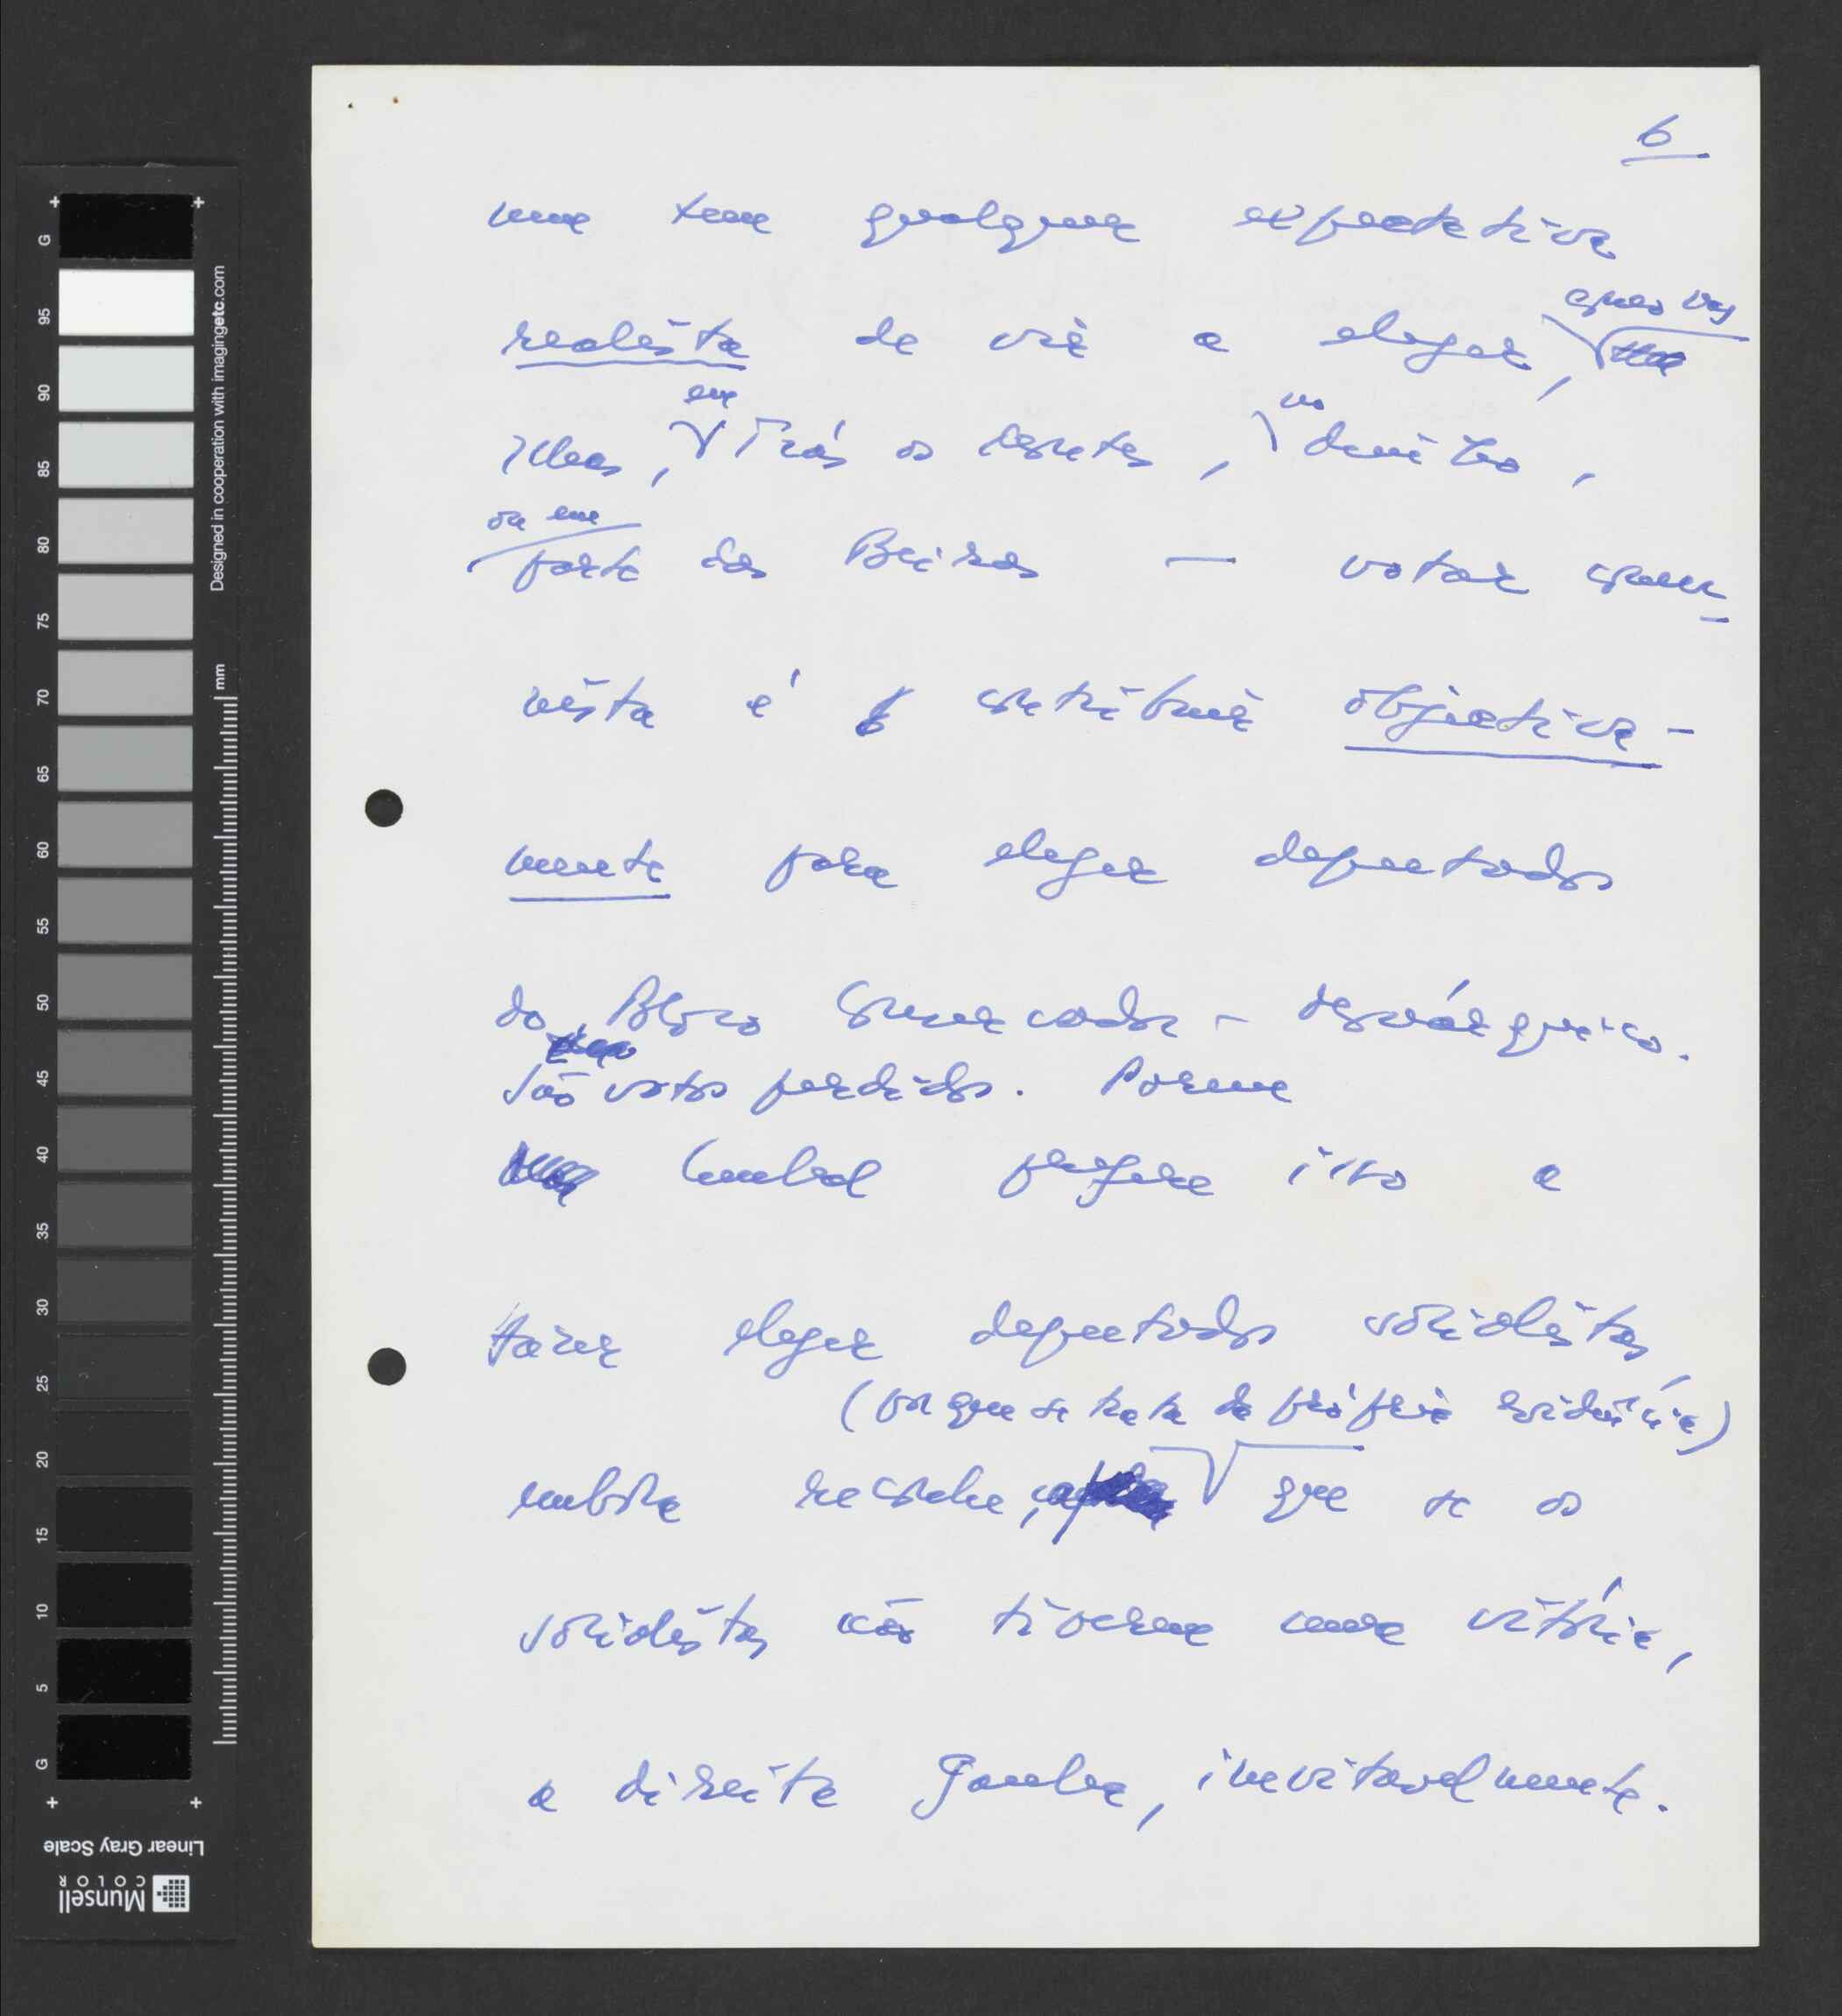 6
nem tem qualquer expectativa
realista de vir a eleger, como nas
Ilhas, em Trás os Montes, no Minho,
ou em parte das Beiras — votar comu-
nista é contribuir objectiva-
mente para eleger deputados
do Bloco Conservador-
São votos perdidos. Porem
Cunhal prefere isso a
fazer eleger deputados socialistas,
(por que se trata de própria evidência)
embora reconheça, que se os
socialistas não tiverem uma vitória,
a direita ganha, inevitavelmente.
G 95 90 85 80 75 70 65 60 55 50 45 40 35 30 25 20 15 10 5 G
mm
Designed in cooperation with imagingetc.com
Linear Gray Scale
Munsell
COLOR